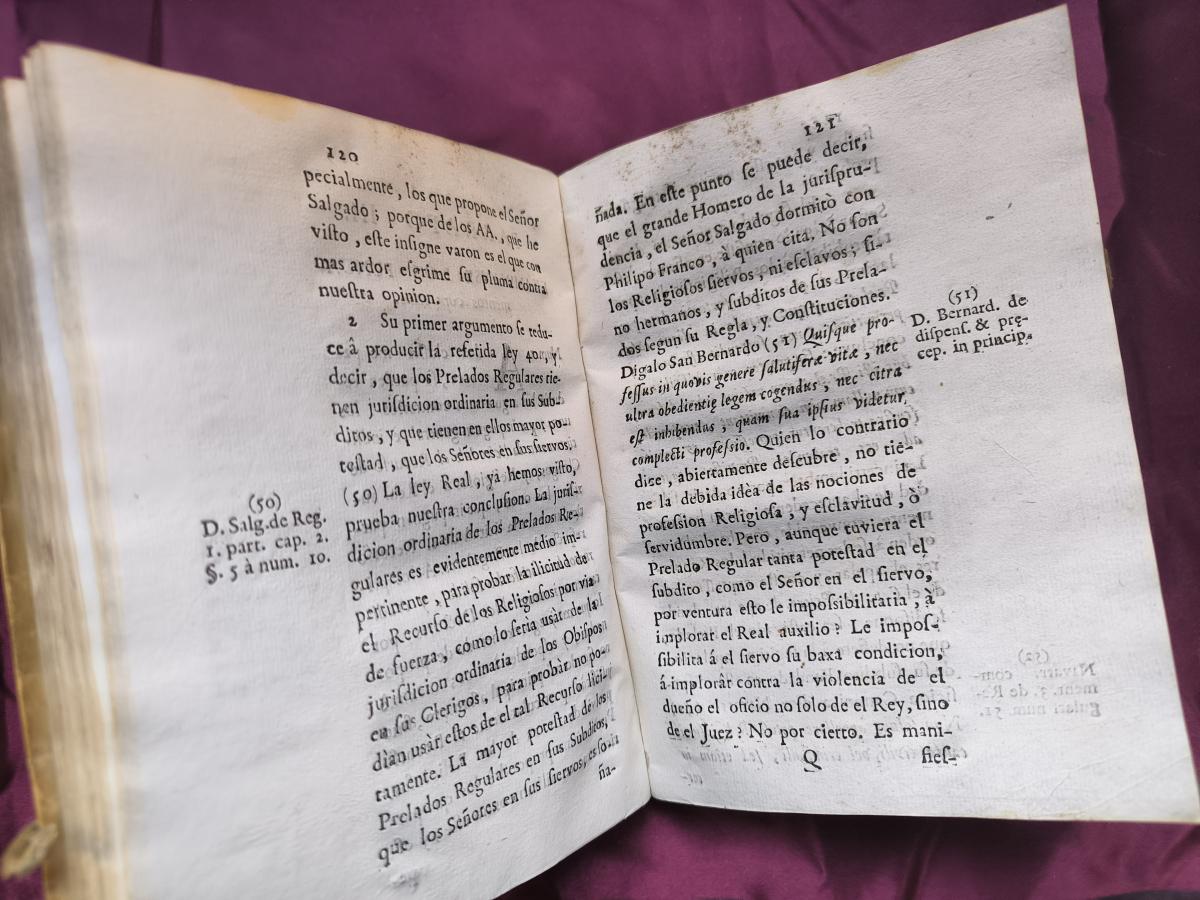 120
pecialmente, los que propone el Señor
Salgado; porque de los AA., que he
viſto, eſte inſigne varon es el que con
mas ardor eſgrime ſu pluma contra
nueſtra opinion.
2 Su primer argumento ſe redu-
ce â producir la refetida ley 40., y
decir, que los Prelados Regulares tie-
nen juriſdicion ordinaria en ſus Sub-
ditos, y que tienen en ellos mayor po-
teſtad, que los Señores en ſus ſiervos.
(50) La ley Real, ya hemos viſto,
prueba nueſtra concluſion. La juriſ-
dicion ordinaria de los Prelados Re-
gulares es evidentemente medio im-
pertinente, para probar la ilicitud de
el Recurſo de los Religioſos por via
de fuerza, como lo ſeria uſàr de la
juriſdicion ordinaria de los Obiſpos
en ſus Clerigos, para probar no po-
dìan uſàr eſtos de el tal Recurſo lici-
tamente. La mayor poteſtad de los
Prelados Regulares en ſus Subditos,
que los Señores en ſus ſiervos, es ſo-
ña-
(50)
D. Salg. de Reg.
1. part. cap. 2.
§. 5 à num. 10.
121
ñada. En eſte punto ſe puede decir,
que el grande Homero de la juriſpru-
dencia, el Señor Salgado dormitò con
Philipo Franco, à quien cita. No ſon
los Religioſos ſiervos, ni eſclavos; ſi-
no hermanos, y ſubditos de ſus Prela-
dos ſegun ſu Regla, y Conſtituciones.
Digalo San Bernardo (51) Quiſque pro-
feſſus in quovis genere ſalutiferæ vitæ, nec
ultra obedientię legem cogendus, nec citra
eſt inhibendus, quam ſua ipſius videtur,
complecti profeſsio. Quien lo contrario
dice, abiertamente deſcubre, no tie-
ne la debida idèa de las nociones de
profeſsion Religioſa, y eſclavitud, ò
ſervidumbre. Pero, aunque tuviera el
Prelado Regular tanta poteſtad en el
ſubdito, como el Señor en el ſiervo,
por ventura eſto le impoſsibilitaria, à
implorar el Real auxilio? Le impoſ-
ſibilita á el ſiervo ſu baxa condicion,
á implorâr contra la violencia de el
dueño el oficio no ſolo de el Rey, ſino
de el Juez? No por cierto. Es mani-
Q
fieſ-
(51)
D. Bernard. de
diſpenſ. & prę-
cep. in princip.